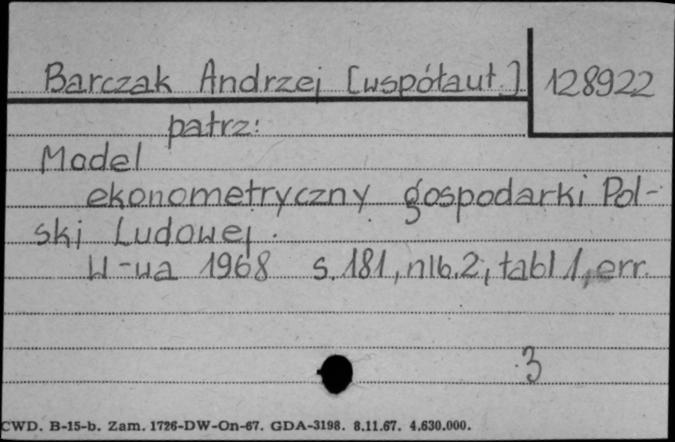 Barczak Andrzej [współaut.] 128922
patrz:
Model
ekonometryczny gospodarki Pol-
ski Ludowej.
W-wa 1968 s. 181, nlb. 2, tabl 1, err.
3
CWD. B-15-b. Zam. 1726-DW-On-67. GDA-3198. 8.11.67. 4.630.000.